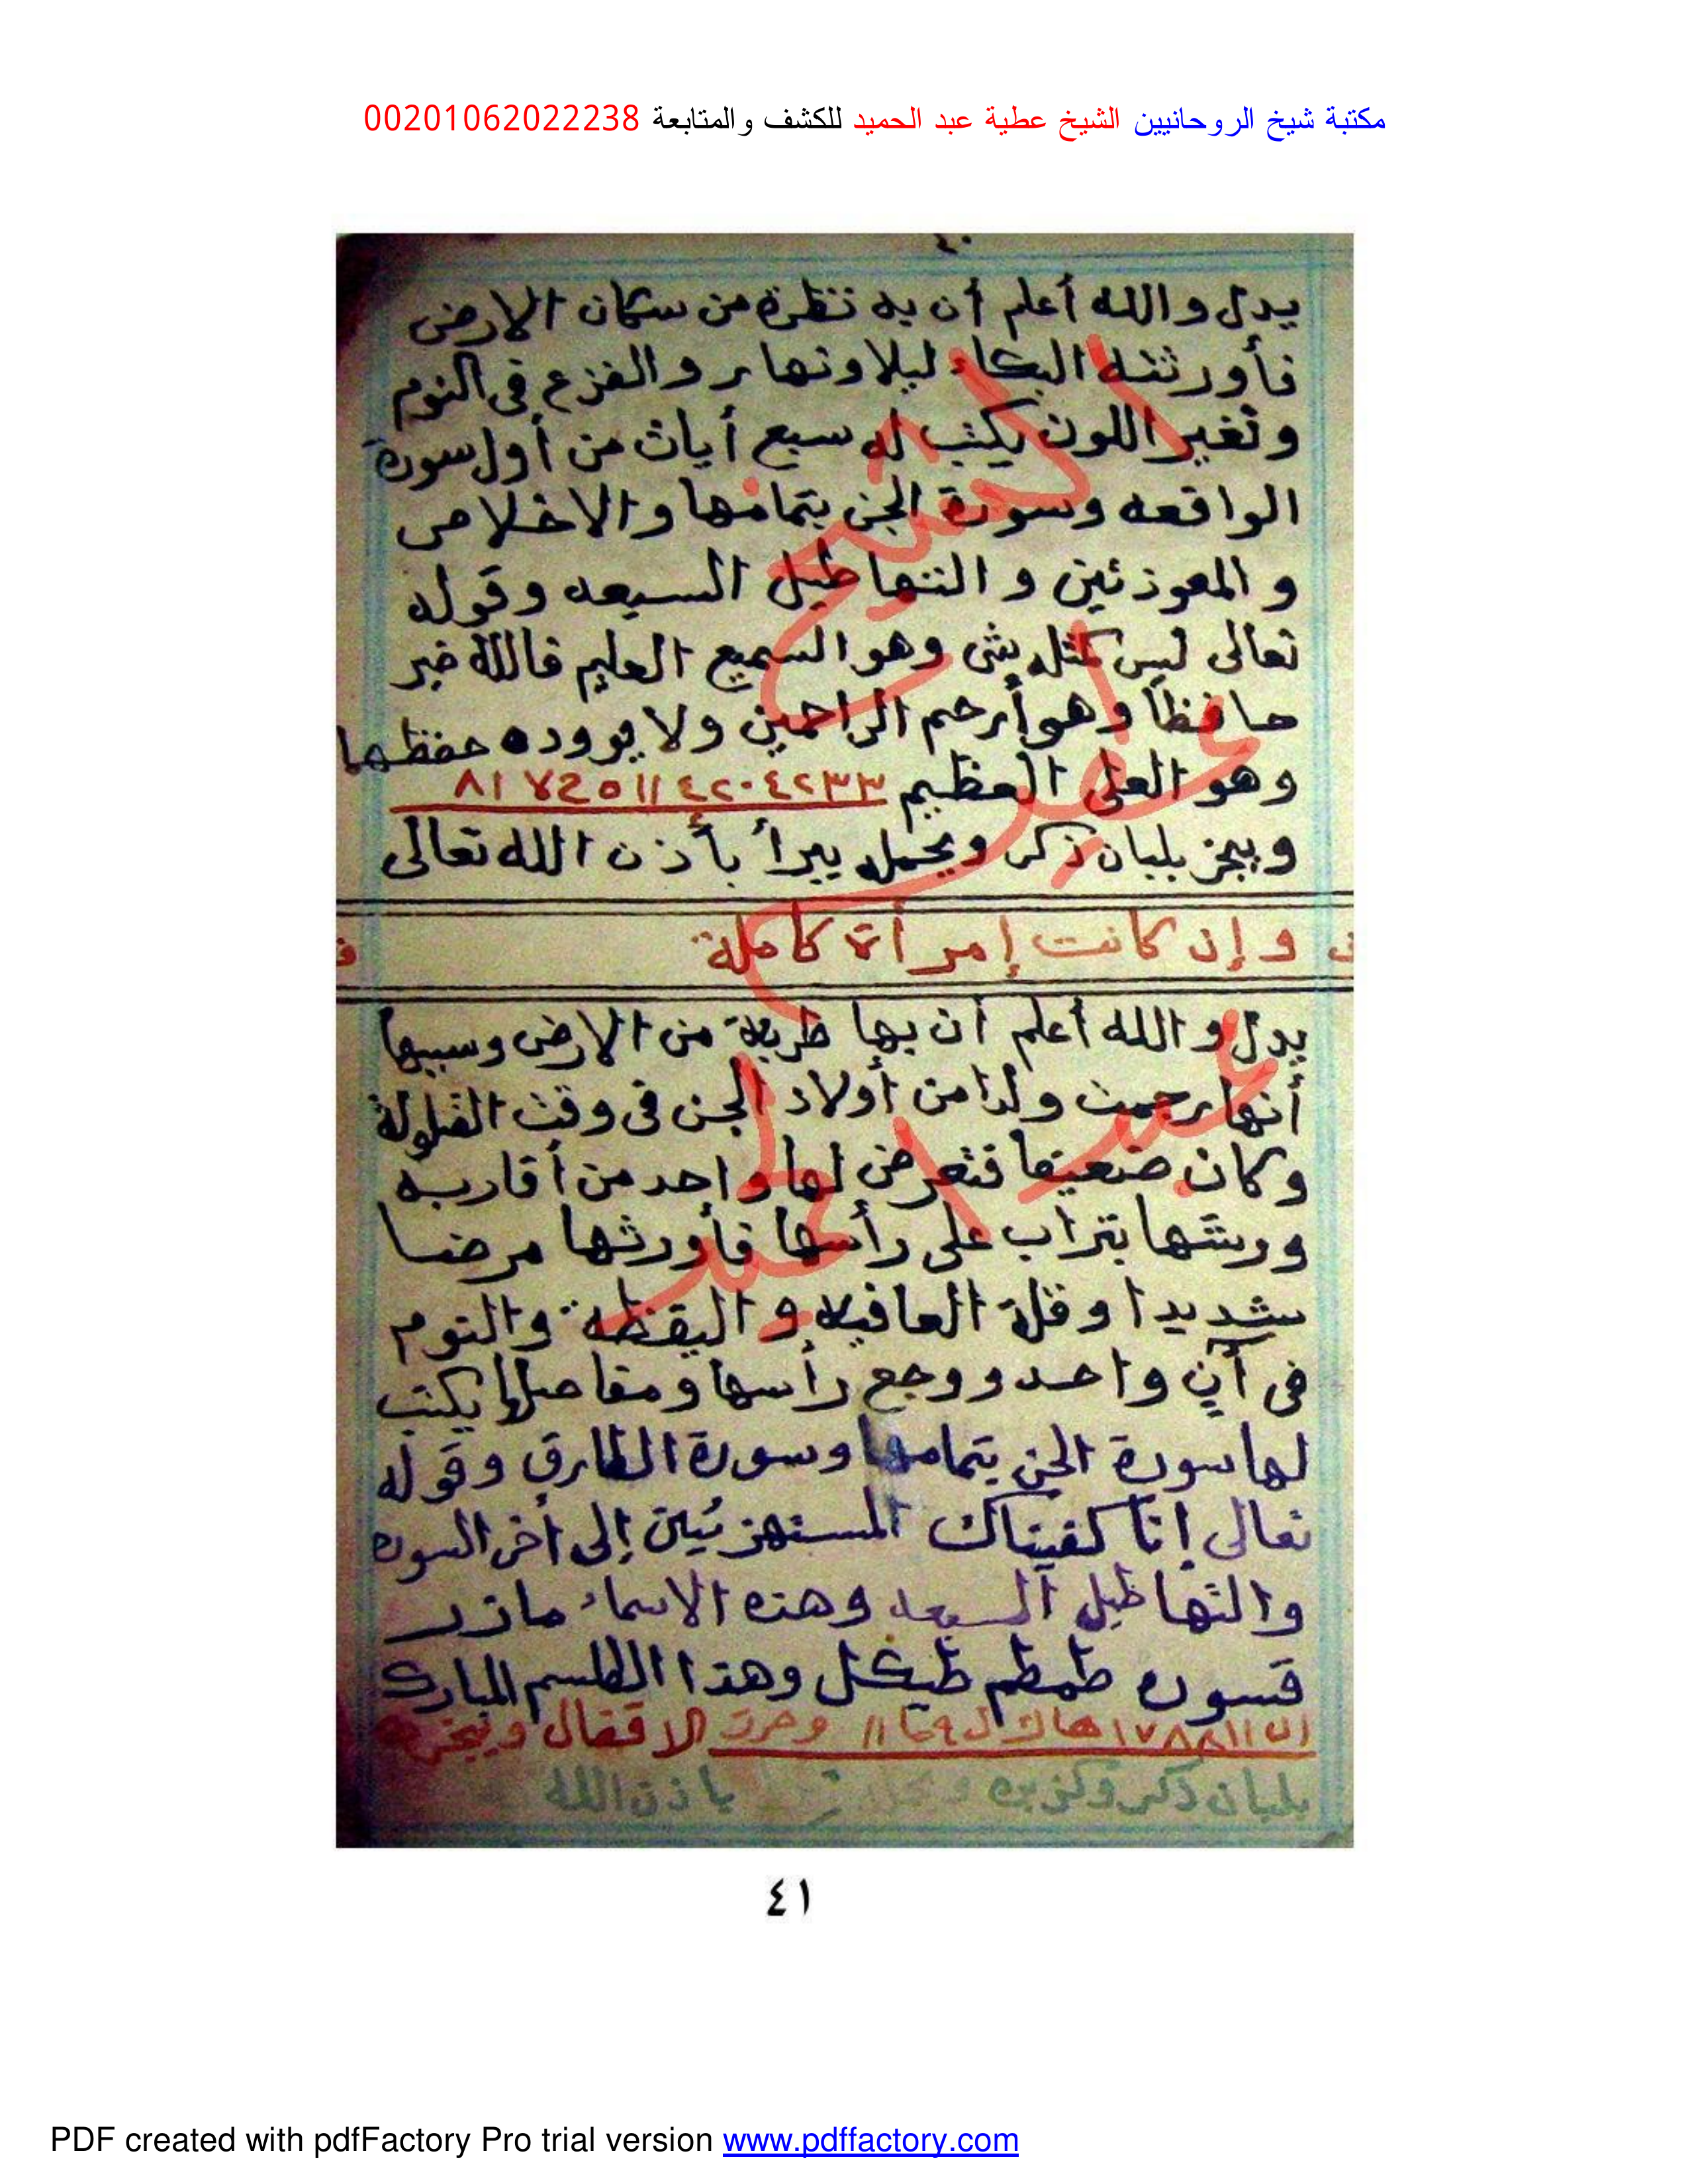 مكتبة شيخ الروحانيين الشيخ عطية عبد الحميد للكشف والمتابعة 00201062022238
٤٠
يدل والله أعلم أن به نظرة من سكان الارض
فأورثته البكاء ليلا ونهار والفزع فى النوم
وتغير اللون يكتب له سبع أيات من أول سورة
الواقعه وسورة الجن بتمامها والاخلاص
والمعوذتين والتهاطيل السبعه وقوله
تعالى ليس كمثله شئ وهو السميع العليم فالله خير
حافظاً وهو أرحم الراحمين ولا يووده حفظهما
وهو العلى العظيم
ويبخر بلبان ذكر ويحمله يبرأ بأذن الله تعالى
وإن كانت إمرأة كاملة
يدل والله أعلم أن بها طرفة من الارض وسببها
أنها رجمت ولدا من أولاد الجن فى وقت القيلولة
وكان ضعيفا فتعرض لها واحد من أقاربه
ورشها بتراب على رأسها فأورثها مرضا
شديدا وقلة العافيه واليقظة والنوم
فى آنٍ واحد ووجع رأسها ومفاصلها يكتب
لها سورة الجن بتمامها وسورة الطارق وقوله
تعالى إنا كفيناك المستهزئين إلى أخر السوره
والتهاطيل السبعه وهذه الاسماء مازر
قسوره طمطم طيكل وهذا الطلسم المبارك
وحرت الاقفال ويبخر
بلبان ذكر وكزبره باذن الله
الشيخ
عطية
عبد الحميد
٤١
PDF created with pdfFactory Pro trial version www.pdffactory.com